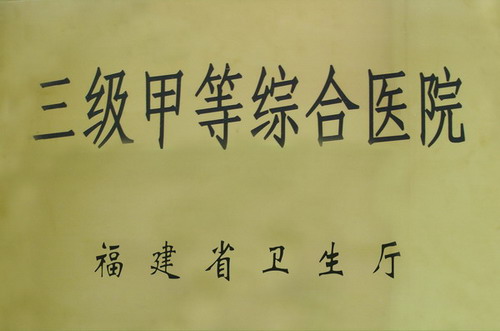 三级甲等综合医院
福建省卫生厅